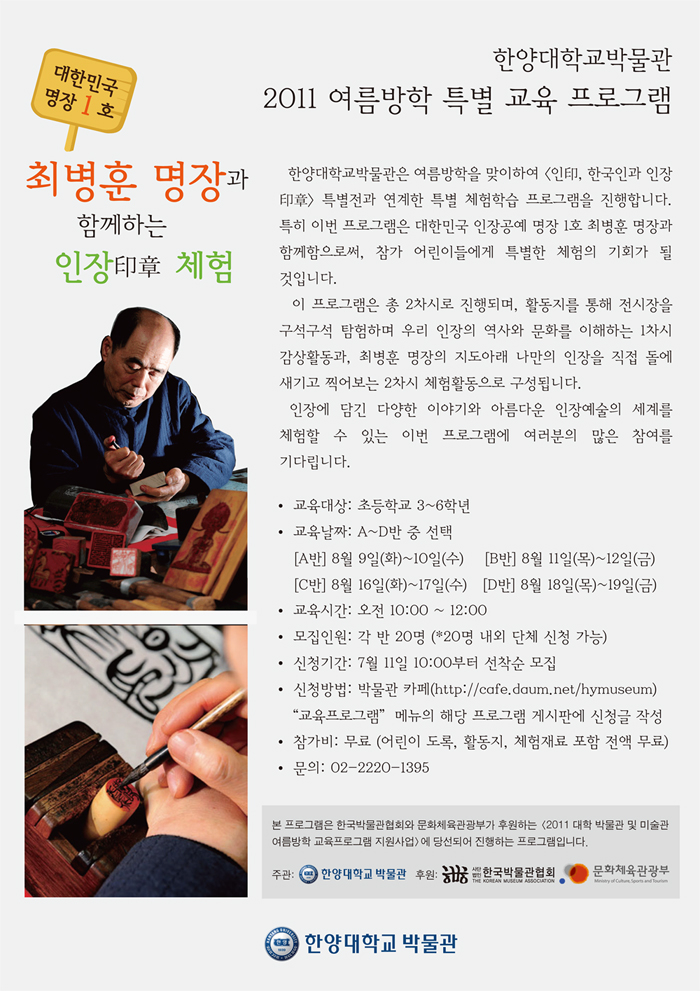 한양대학교박물관
2011 여름방학 특별 교육 프로그램
대한민국
명장 1 호
최병훈 명장과
함께하는
인장印章 체험
한양대학교박물관은 여름방학을 맞이하여 〈인印, 한국인과 인장
印章〉 특별전과 연계한 특별 체험학습 프로그램을 진행합니다.
특히 이번 프로그램은 대한민국 인장공예 명장 1호 최병훈 명장과
함께함으로써, 참가 어린이들에게 특별한 체험의 기회가 될
것입니다.
이 프로그램은 총 2차시로 진행되며, 활동지를 통해 전시장을
구석구석 탐험하며 우리 인장의 역사와 문화를 이해하는 1차시
감상활동과, 최병훈 명장의 지도아래 나만의 인장을 직접 돌에
새기고 찍어보는 2차시 체험활동으로 구성됩니다.
인장에 담긴 다양한 이야기와 아름다운 인장예술의 세계를
체험할 수 있는 이번 프로그램에 여러분의 많은 참여를
기다립니다.
• 교육대상: 초등학교 3~6학년
• 교육날짜: A~D반 중 선택
[A반] 8월 9일(화)~10일(수) [B반] 8월 11일(목)~12일(금)
[C반] 8월 16일(화)~17일(수) [D반] 8월 18일(목)~19일(금)
• 교육시간: 오전 10:00 ~ 12:00
• 모집인원: 각 반 20명 (*20명 내외 단체 신청 가능)
• 신청기간: 7월 11일 10:00부터 선착순 모집
• 신청방법: 박물관 카페(http://cafe.daum.net/hymuseum)
“교육프로그램” 메뉴의 해당 프로그램 게시판에 신청글 작성
• 참가비: 무료 (어린이 도록, 활동지, 체험재료 포함 전액 무료)
• 문의: 02-2220-1395
본 프로그램은 한국박물관협회와 문화체육관광부가 후원하는 〈2011 대학 박물관 및 미술관
여름방학 교육프로그램 지원사업〉에 당선되어 진행하는 프로그램입니다.
주관: 한양대학교 박물관 후원: 사단법인 한국박물관협회 THE KOREAN MUSEUM ASSOCIATION 문화체육관광부 Ministry of Culture, Sports and Tourism
한양대학교 박물관